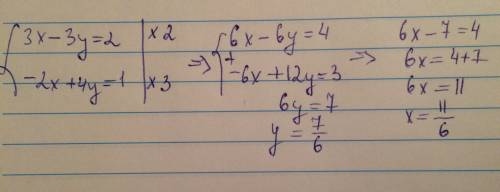 3x-3y=2 | x2
-2x+4y=1 | x3
=> 6x-6y=4
+
-6x+12y=3
6y=7
y=7/6
=> 6x-7=4
6x=4+7
6x=11
x=11/6